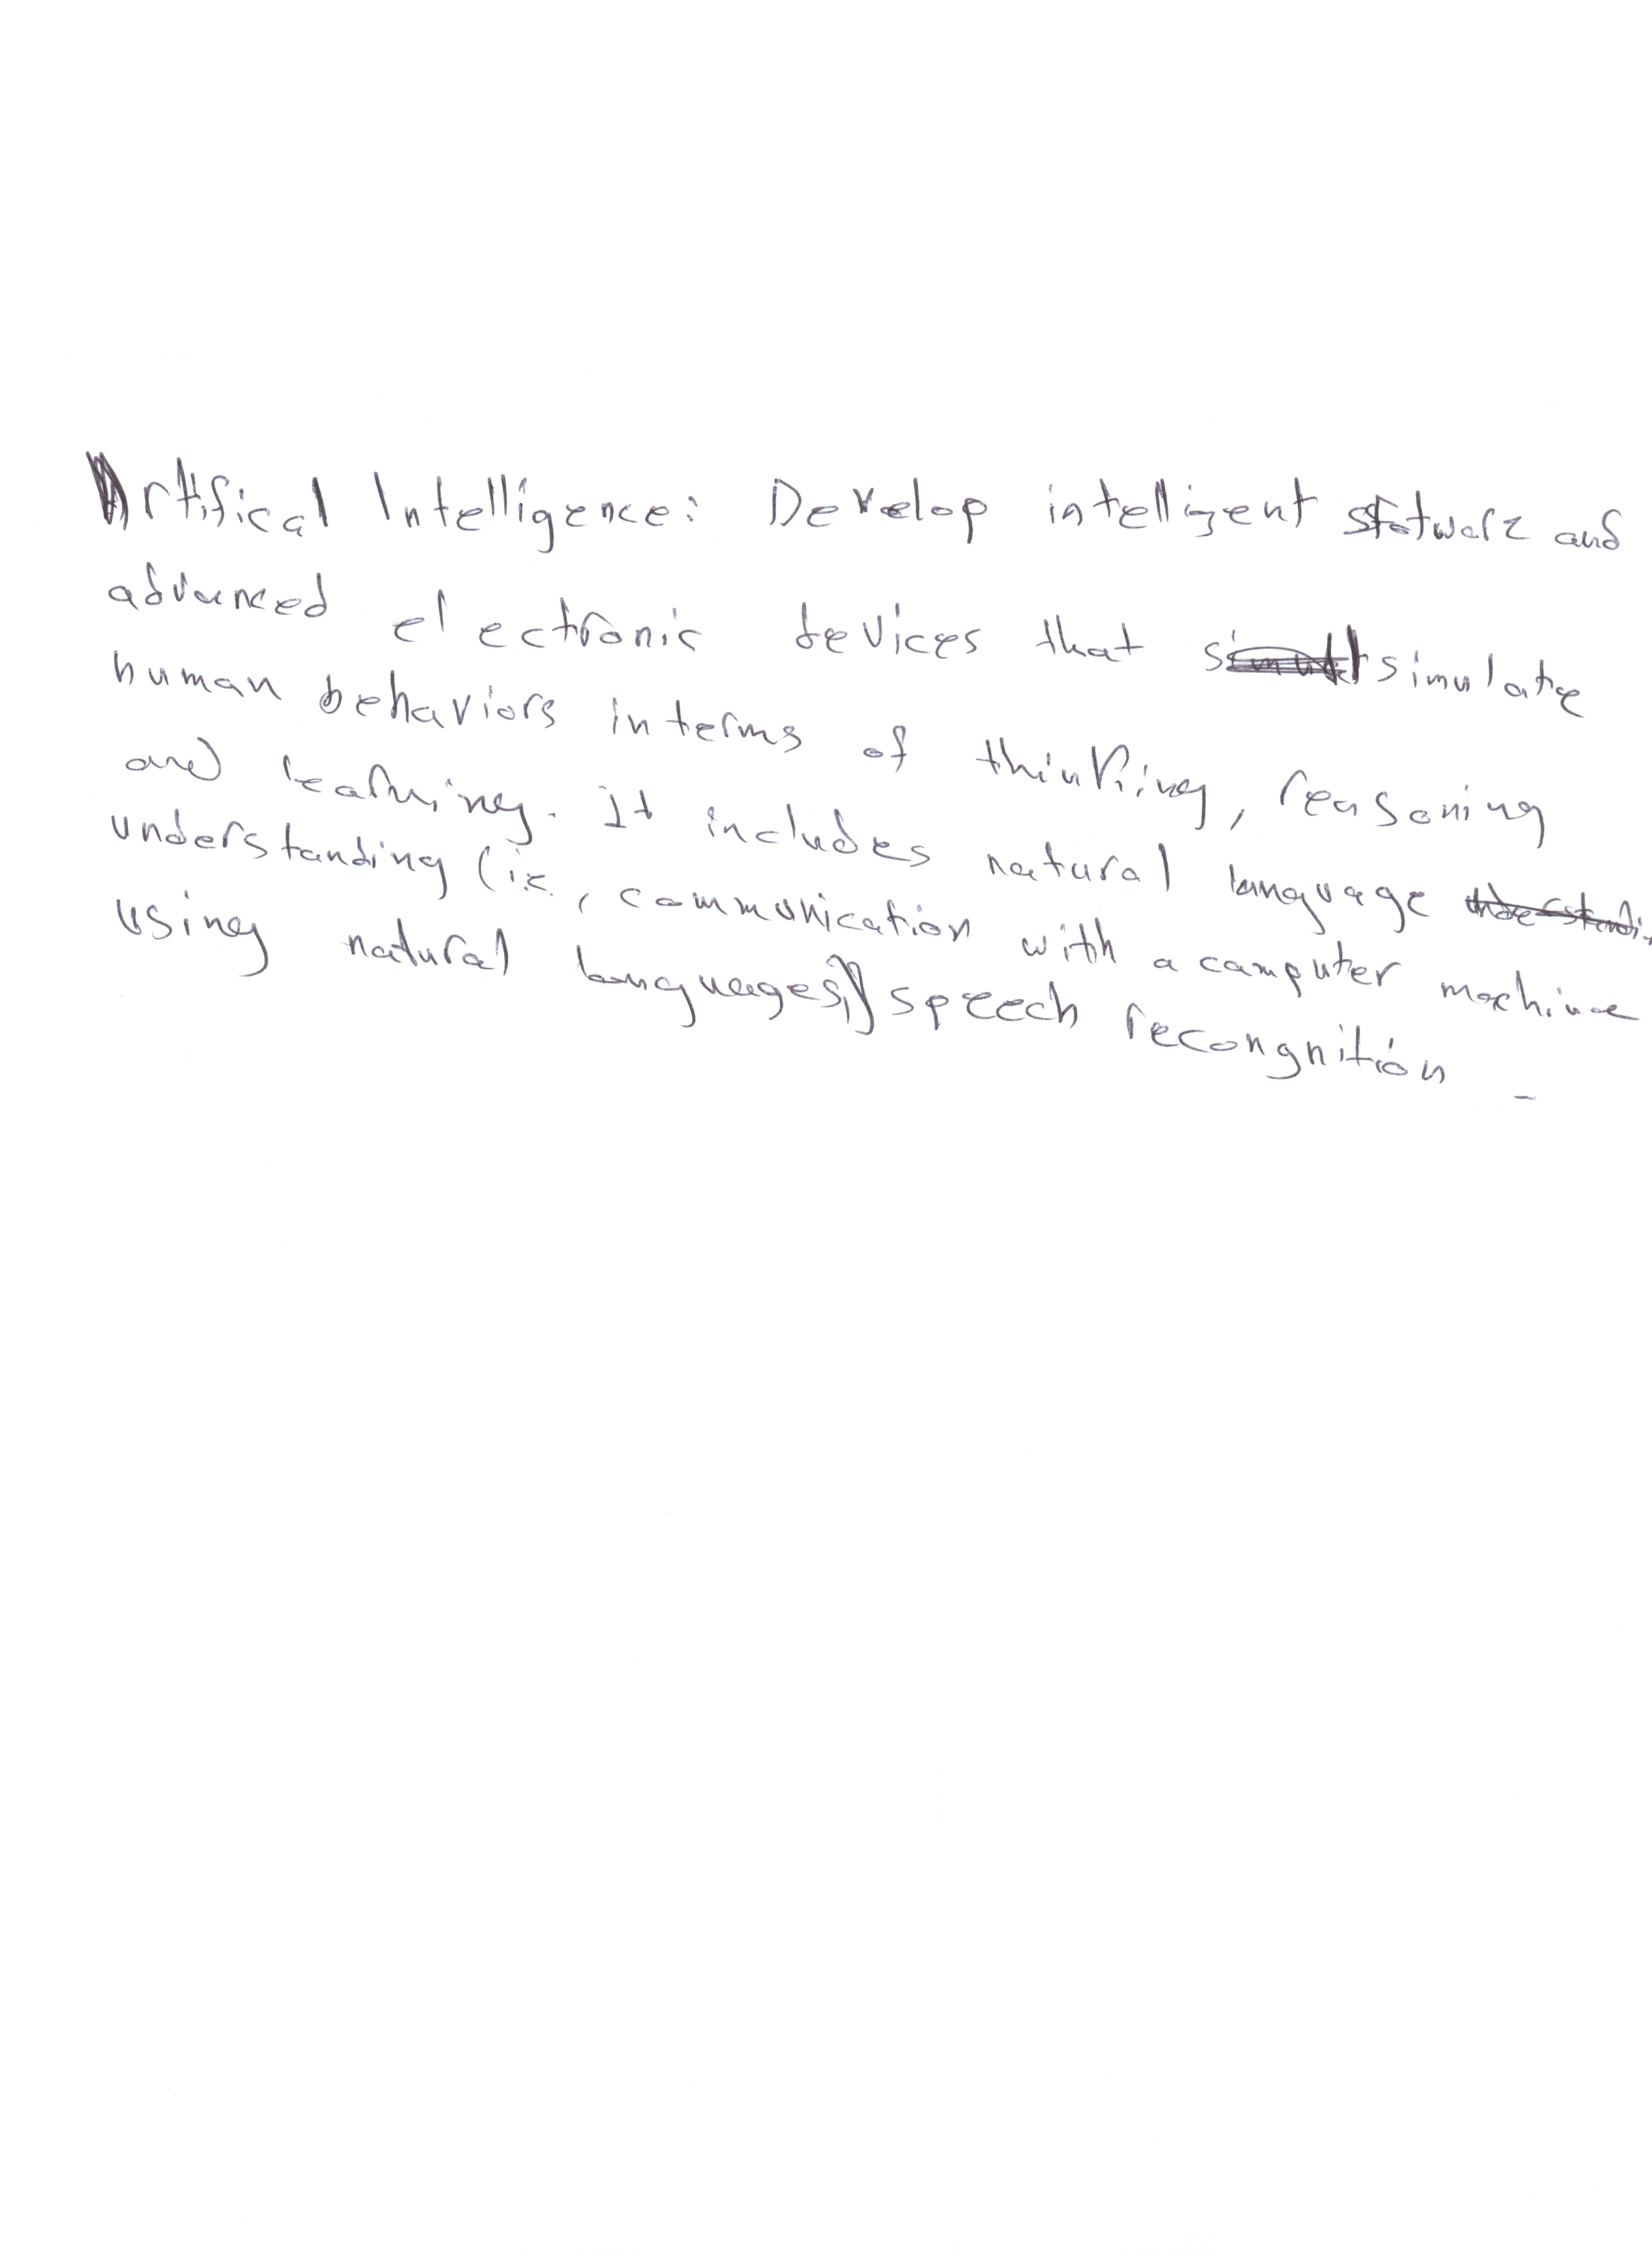 Artifical Intelligence: Develop intelligent sfotware and
advanced electronic devices that simulate
human behaviors in terms of thinking, reasoning
and learning. It includes natural language
understanding (i.e., communication with a computer machine
using natural languages), speech recongnition -